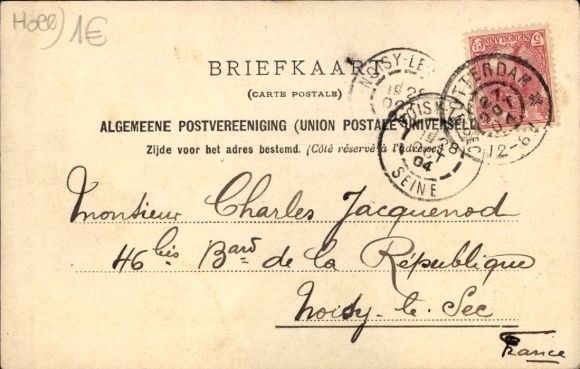 Holl) 1€
NEDERLAND
5 ct
BRIEFKAART
(CARTE POSTALE)
ALGEMEENE POSTVEREENIGING (UNION POSTALE UNIVERSELLE)
Zijde voor het adres bestemd. (Côté réservé à l'adresse)
NOISY-LE-
28
ROTTERDAM
27 OCT 04
12-6
NOISY
28 OCT 04
SEINE
Monsieur Charles Jacquenod
46 bis Bard de la République
Noisy-le-Sec
France